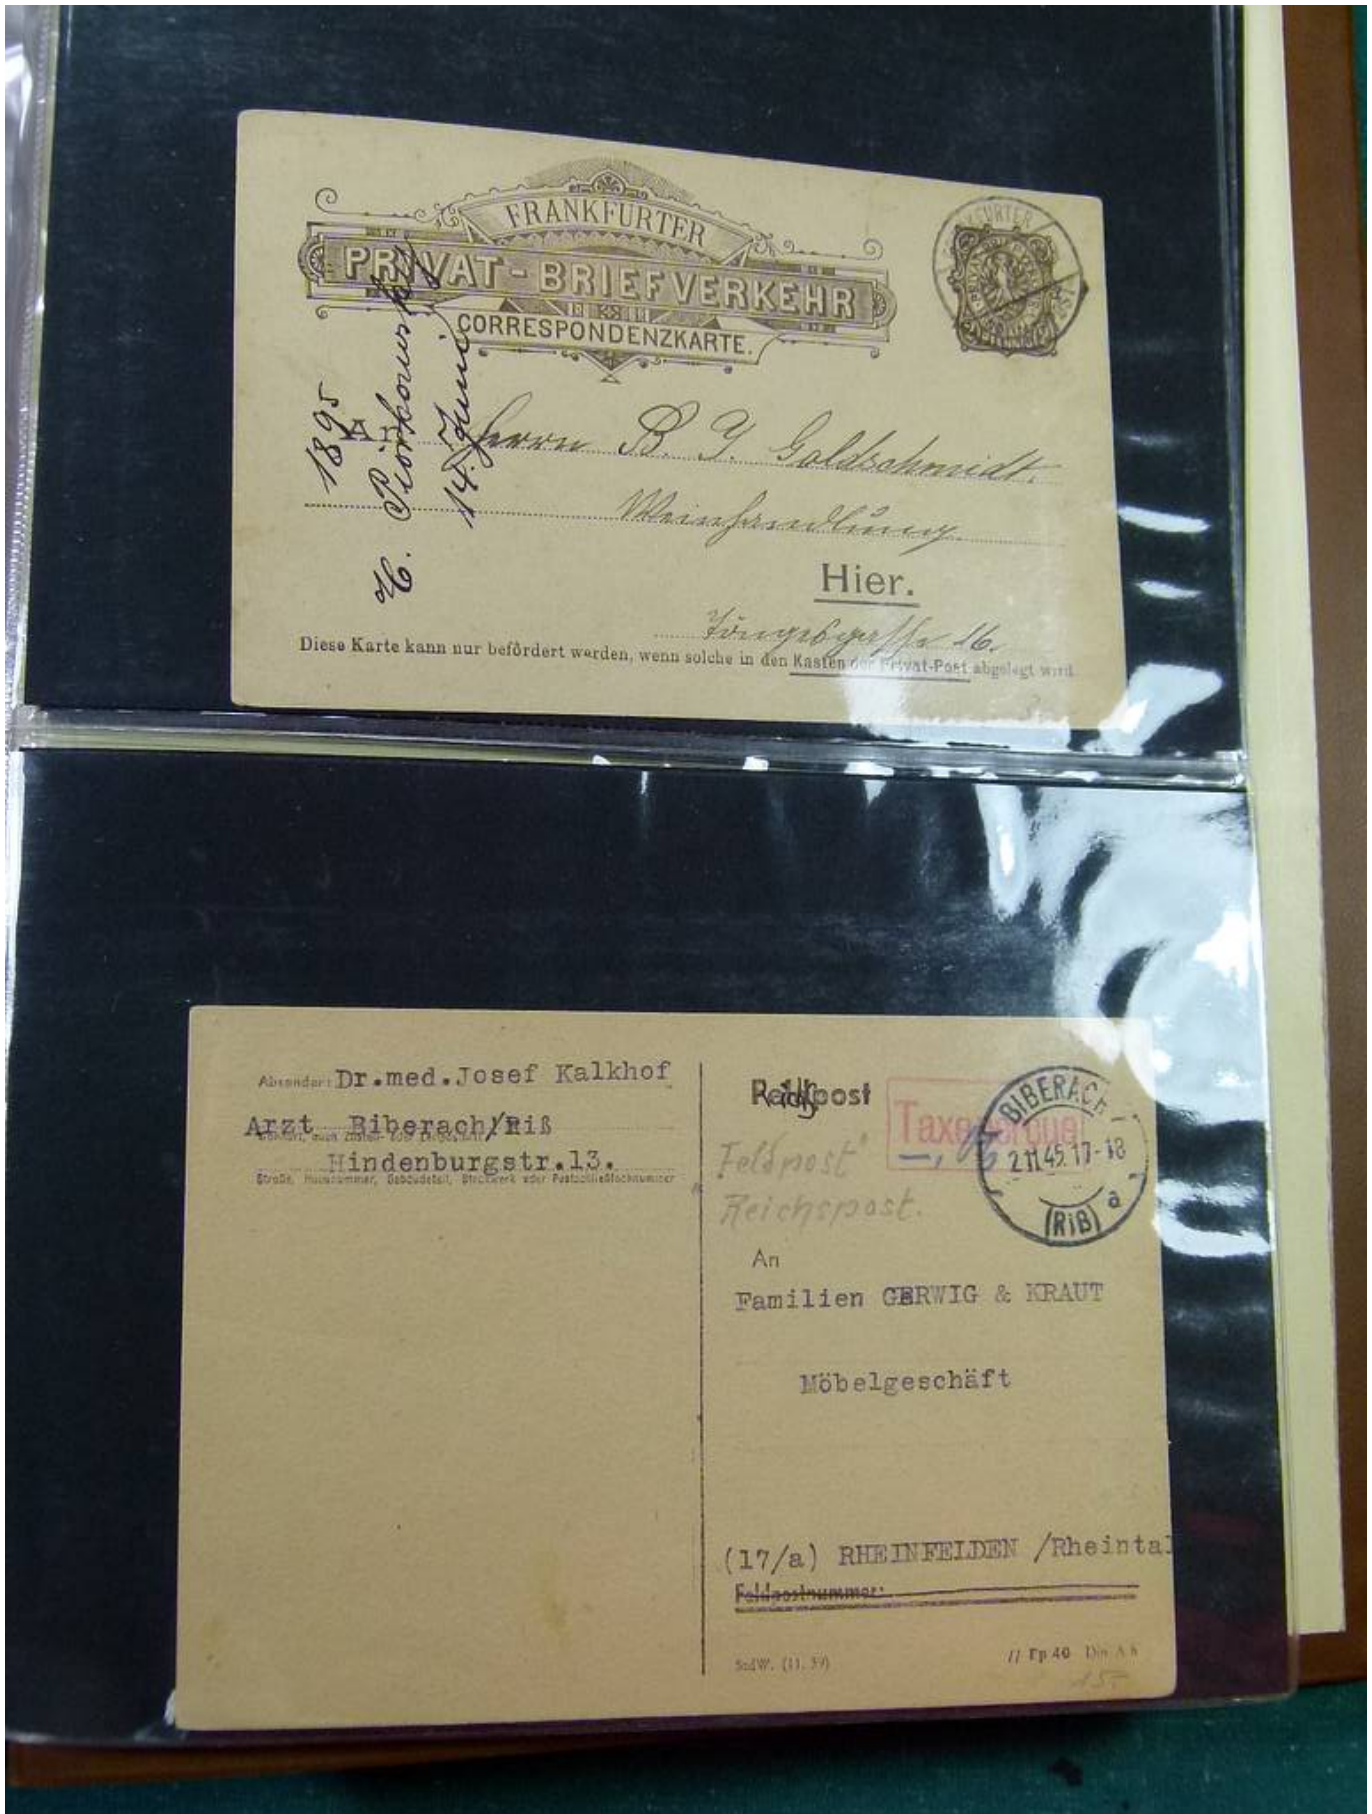 FRANKFURTER
PRIVAT-BRIEFVERKEHR
CORRESPONDENZKARTE.
FRANKFURTER
1895
H. Piorkowsky
14. Juni
An
Herrn B. J. Goldschmidt.
Weinhandlung.
Hier.
Töngesgasse 16.
Diese Karte kann nur befördert werden, wenn solche in den Kasten der Privat-Post abgelegt wird.
Absender: Dr.med.Josef Kalkhof
Arzt Biberach/Riß
Hindenburgstr.13.
Straße, Hausnummer, Gebäudeteil, Stockwerk oder Postschließfachnummer
Feldpost
Taxe perçue
BIBERACH
2.11.45.17-18
(RIB) a
Feldpost
Reichspost.
An
Familien GERWIG & KRAUT
Möbelgeschäft
(17/a) RHEINFELDEN /Rheintal
Feldpostnummer:
StdW. (11. 39)
// Fp 40 Din A 6
15.-